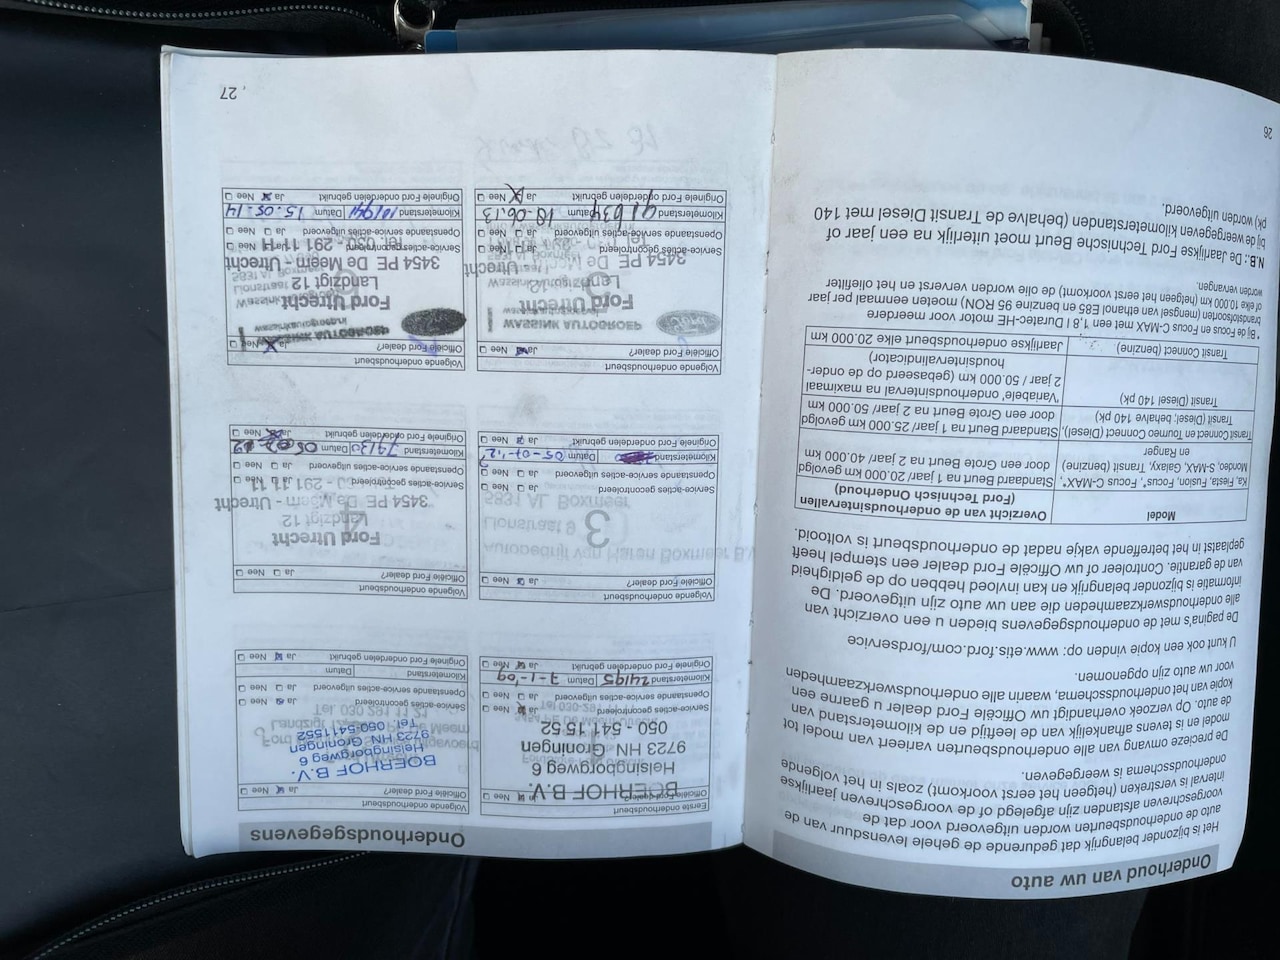 Onderhoud van uw auto
Het is bijzonder belangrijk dat gedurende de gehele levensduur van de
auto de onderhoudsbeurten worden uitgevoerd voor dat de
voorgeschreven afstanden zijn afgelegd of de voorgeschreven jaarlijkse
interval is verstreken (hetgeen het eerst voorkomt) zoals in het volgende
onderhoudsschema is weergegeven.
De precieze omvang van alle onderhoudsbeurten varieert van model tot
model en is tevens afhankelijk van de leeftijd en de kilometerstand van
de auto. Op verzoek overhandigt uw Officiële Ford dealer u gaarne een
kopie van het onderhoudsschema, waarin alle onderhoudswerkzaamheden
voor uw auto zijn opgenomen.
U kunt ook een kopie vinden op: www.etis.ford.com/fordservice
De pagina's met de onderhoudsgegevens bieden u een overzicht van
alle onderhoudswerkzaamheden die aan uw auto zijn uitgevoerd. De
informatie is bijzonder belangrijk en kan invloed hebben op de geldigheid
van de garantie. Controleer of uw Officiële Ford dealer een stempel heeft
geplaatst in het betreffende vakje nadat de onderhoudsbeurt is voltooid.
Model
Overzicht van de onderhoudsintervallen
(Ford Technisch Onderhoud)
Ka, Fiesta, Fusion, Focus*, Focus C-MAX*,
Mondeo, S-MAX, Galaxy, Transit (benzine)
en Ranger
Standaard Beurt na 1 jaar/ 20.000 km gevolgd
door een Grote Beurt na 2 jaar/ 40.000 km
Transit Connect en Tourneo Connect (Diesel),
Transit (Diesel; behalve 140 pk)
Standaard Beurt na 1 jaar/ 25.000 km gevolgd
door een Grote Beurt na 2 jaar/ 50.000 km
Transit (Diesel 140 pk)
'Variabele' onderhoudsinterval na maximaal
2 jaar / 50.000 km (gebaseerd op de onder-
houdsintervalindicator)
Transit Connect (benzine)
Jaarlijkse onderhoudsbeurt elke 20.000 km
* Bij de Focus en Focus C-MAX met een 1,8 l Duratec-HE motor voor meerdere
brandstofsoorten (mengsel van ethanol E85 en benzine 95 RON) moeten eenmaal per jaar
of elke 10.000 km (hetgeen het eerst voorkomt) de olie worden ververst en het oliefilter
worden vervangen.
N.B.: De Jaarlijkse Ford Technische Beurt moet uiterlijk na een jaar of
bij de weergegeven kilometerstanden (behalve de Transit Diesel met 140
pk) worden uitgevoerd.
26
Onderhoudsgegevens
Eerste onderhoudsbeurt
Officiële Ford dealer? Ja Nee
BOERHOF B.V.
Helsingborgweg 6
9723 HN Groningen
050 - 541 15 52
Service-acties gecontroleerd Ja Nee
Openstaande service-acties uitgevoerd Ja Nee
Kilometerstand 24195 Datum 7-1-09
Originele Ford onderdelen gebruikt Ja Nee
Volgende onderhoudsbeurt
Officiële Ford dealer? Ja Nee
BOERHOF B.V.
Helsingborgweg 6
9723 HN Groningen
Tel. 050-5411552
Tel. 030 291 11 21
Service-acties gecontroleerd Ja Nee
Openstaande service-acties uitgevoerd Ja Nee
Kilometerstand Datum
Originele Ford onderdelen gebruikt Ja Nee
Volgende onderhoudsbeurt
Officiële Ford dealer? Ja Nee
Autobedrijf van Haren Boxmeer B.V.
Lionstraat 9
5831 AL Boxmeer
3
Service-acties gecontroleerd Ja Nee
Openstaande service-acties uitgevoerd Ja Nee
Kilometerstand Datum 05-07-'12
Originele Ford onderdelen gebruikt Ja Nee
Volgende onderhoudsbeurt
Officiële Ford dealer? Ja Nee
Ford Utrecht
Landzigt 12
3454 PE De Meern - Utrecht
4
Service-acties gecontroleerd Ja Nee
Openstaande service-acties uitgevoerd Ja Nee
Kilometerstand Datum
Originele Ford onderdelen gebruikt Ja Nee
Volgende onderhoudsbeurt
Officiële Ford dealer? Ja Nee
WASSINK AUTOGROEP
wassinkautogroep.nl
Ford Utrecht
Landzigt 12
3454 PE De Meern - Utrecht
Service-acties gecontroleerd Ja Nee
Openstaande service-acties uitgevoerd Ja Nee
Kilometerstand 91634 Datum 18-06-13
Originele Ford onderdelen gebruikt Ja Nee
Volgende onderhoudsbeurt
Officiële Ford dealer? Ja Nee
WASSINK AUTOGROEP
wassinkautogroep.nl
Ford Utrecht
Landzigt 12
3454 PE De Meern - Utrecht
Tel. 030 - 291 11 11
Service-acties gecontroleerd Ja Nee
Openstaande service-acties uitgevoerd Ja Nee
Kilometerstand Datum 15-05-14
Originele Ford onderdelen gebruikt Ja Nee
27